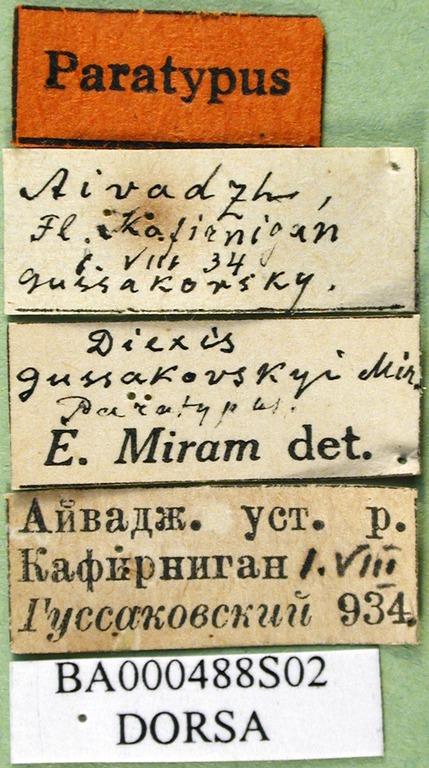 Paratypus
Aivadzh,
Fl. Kafirnigan
1 VIII 34
gussakovsky.
Diexis
gussakovskyi Mir.
Paratypus.
E. Miram det.
Айвадж. уст. р.
Кафирниган 1. VIII
Гуссаковский 934.
BA000488S02
DORSA